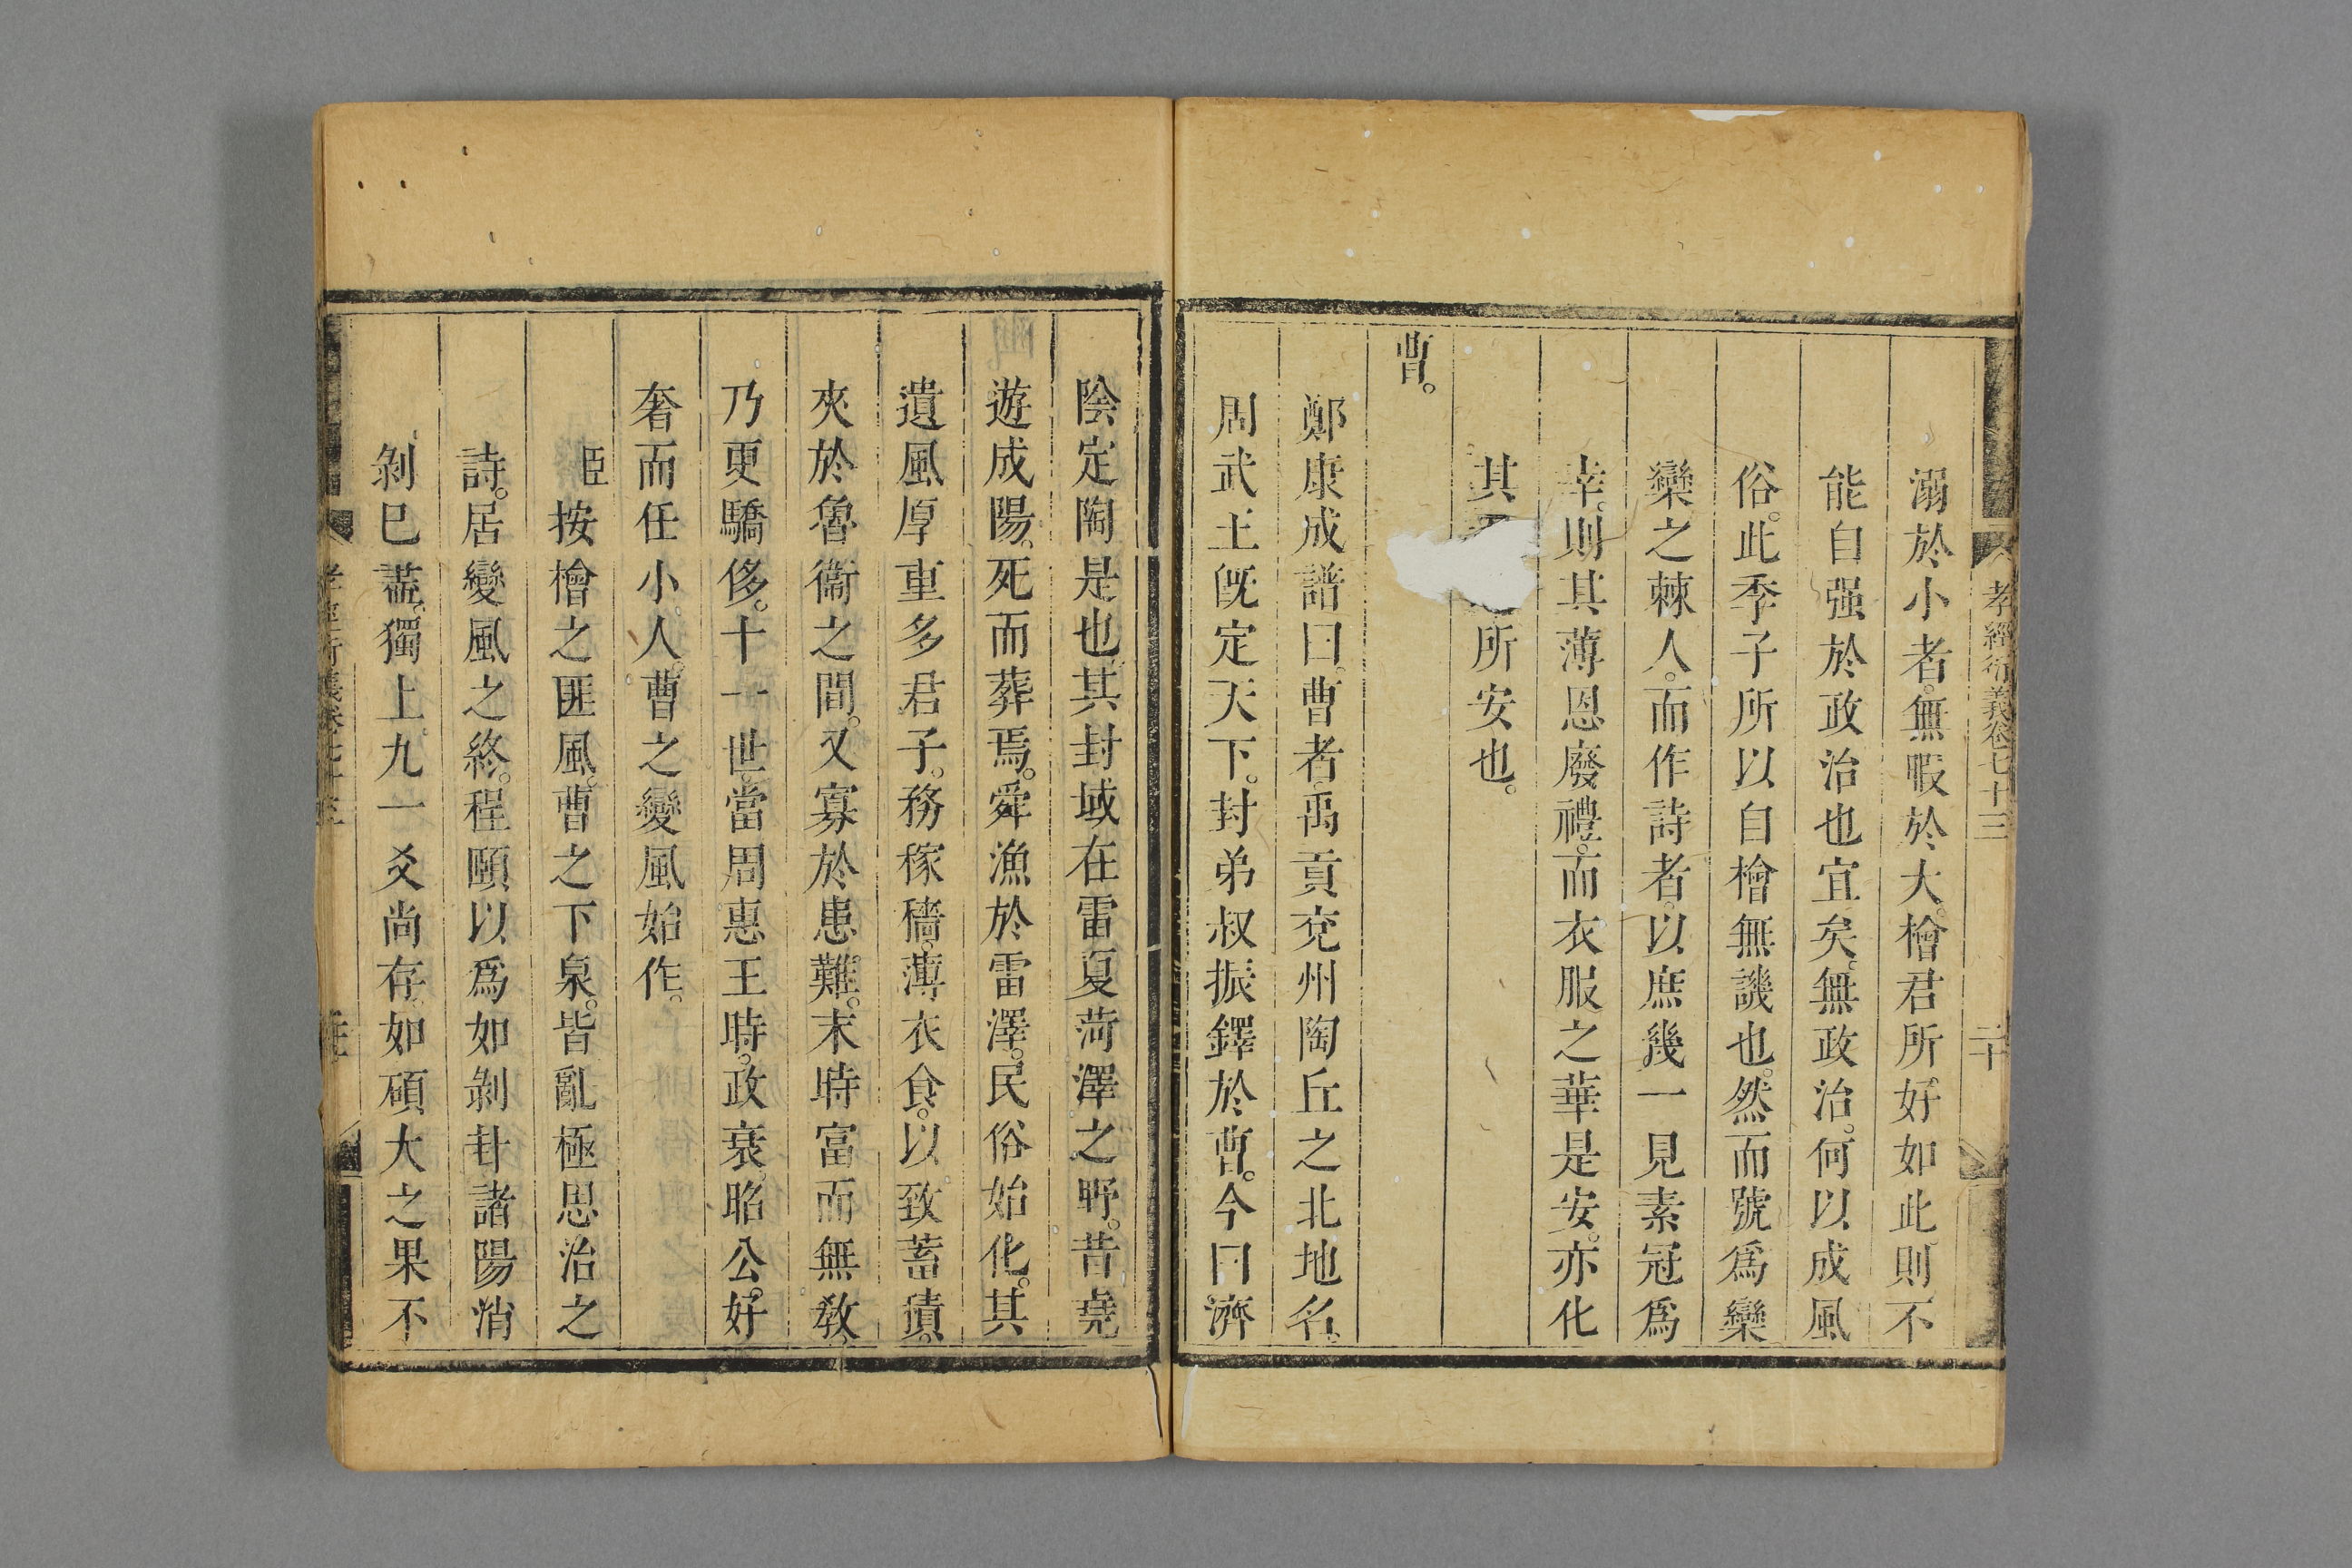 孝經衍義卷七十三 二十
溺於小者。無暇於大。檜君所好如此。則不
能自强於政治也宜矣。無政治。何以成風
俗。此季子所以自檜無譏也。然而號爲欒
欒之棘人。而作詩者。以庶幾一見素冠爲
幸。則其薄恩廢禮。而衣服之華是安。亦化
其所安也。
曹。
鄭康成譜曰。曹者。禹貢兗州陶丘之北地名。
周武王旣定天下。封弟叔振鐸於曹。今曰濟
陰定陶是也。其封域在雷夏菏澤之野。昔堯
遊成陽。死而葬焉。舜漁於雷澤。民俗始化。其
遺風厚重多君子。務稼穡。薄衣食。以致蓄積。
夾於魯衞之間。又寡於患難。末時富而無敎。
乃更驕侈。十一世。當周惠王時。政衰。昭公。好
奢而任小人。曹之變風始作。
臣按檜之匪風。曹之下泉。皆亂極思治之
詩。居變風之終。程頤以爲如剝卦諸陽消
剝已蓋。獨上九一爻尚存。如碩大之果不